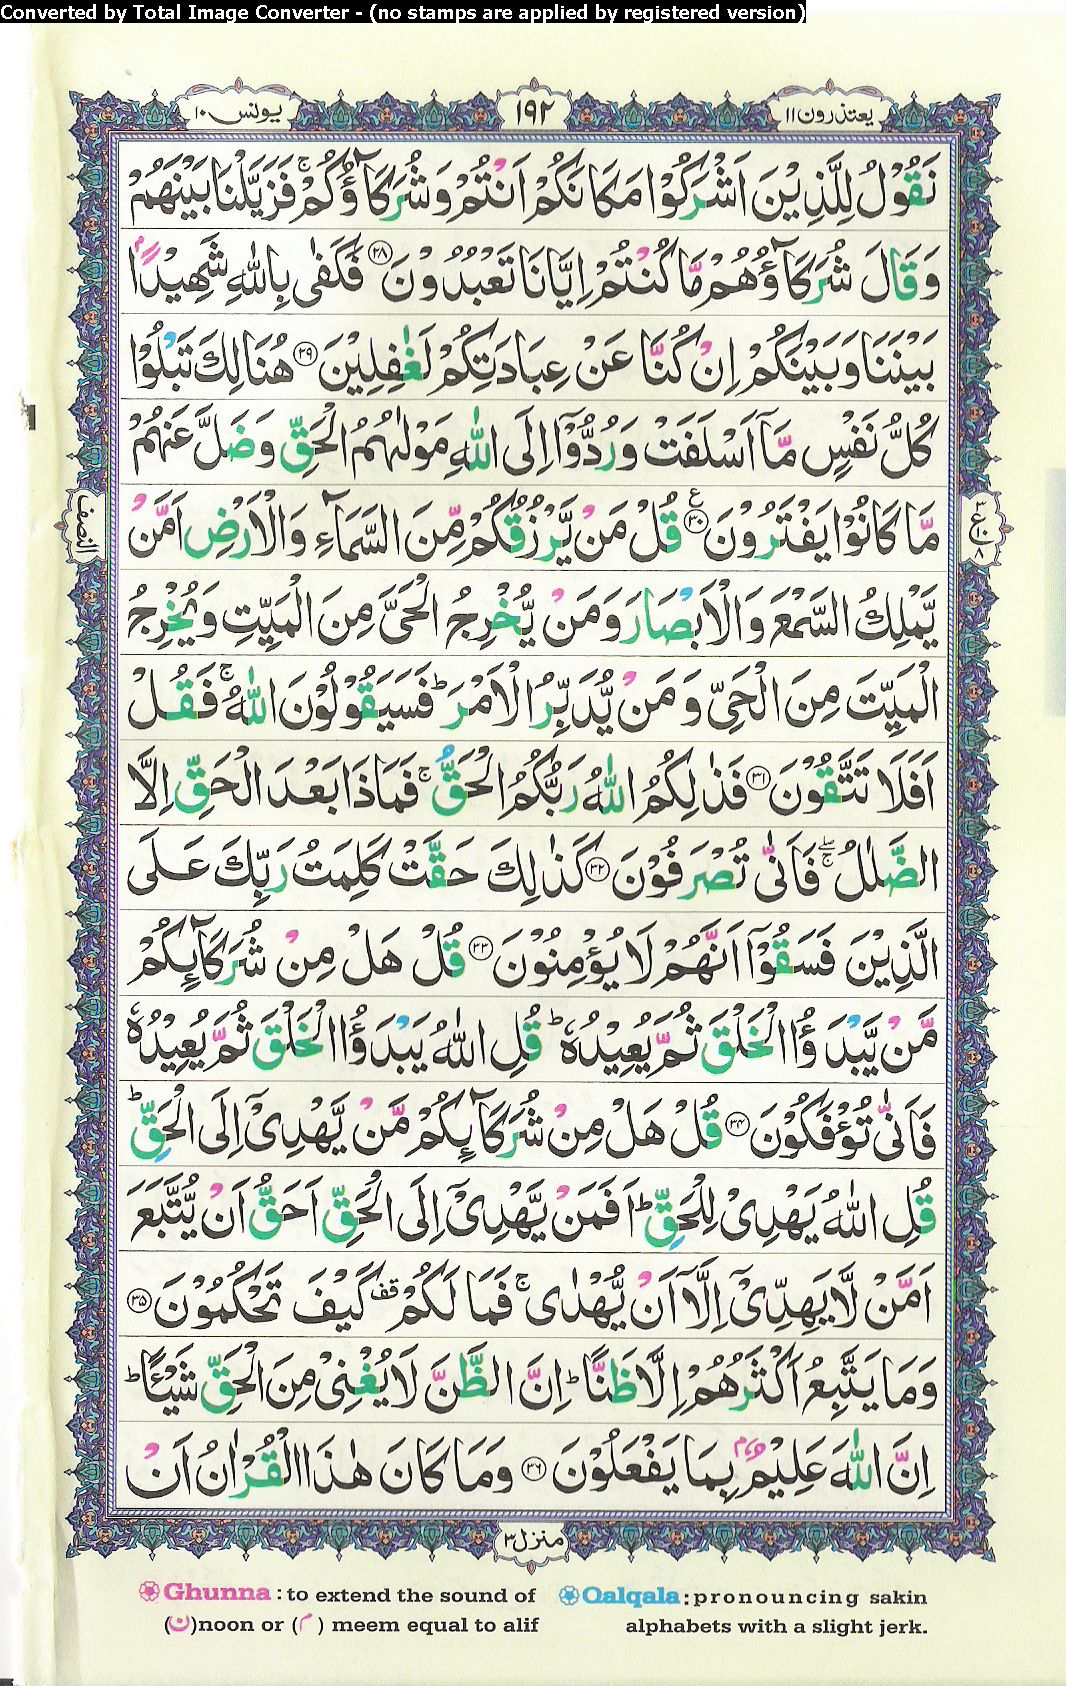 Converted by Total Image Converter - (no stamps are applied by registered version)
یونس ۱۰
۱۹۲
یعتذرون ۱۱
نَقُوْلُ لِلَّذِیْنَ اَشْرَكُوْا مَكَانَكُمْ اَنْتُمْ وَ شُرَكَآؤُكُمْ ۚ فَزَیَّلْنَا بَیْنَهُمْ
وَ قَالَ شُرَكَآؤُهُمْ مَّا كُنْتُمْ اِیَّانَا تَعْبُدُوْنَ ﴿۲۸﴾ فَكَفٰی بِاللّٰهِ شَهِیْدًۢا
بَیْنَنَا وَ بَیْنَكُمْ اِنْ كُنَّا عَنْ عِبَادَتِكُمْ لَغٰفِلِیْنَ ﴿۲۹﴾ هُنَالِكَ تَبْلُوْا
كُلُّ نَفْسٍ مَّاۤ اَسْلَفَتْ وَ رُدُّوْۤا اِلَی اللّٰهِ مَوْلٰىهُمُ الْحَقِّ وَ ضَلَّ عَنْهُمْ
مَّا كَانُوْا یَفْتَرُوْنَ ﴿۳۰﴾ ع قُلْ مَنْ یَّرْزُقُكُمْ مِّنَ السَّمَآءِ وَ الْاَرْضِ اَمَّنْ
النصف
۳ ع ۱۰ ۸
یَّمْلِكُ السَّمْعَ وَ الْاَبْصَارَ وَ مَنْ یُّخْرِجُ الْحَیَّ مِنَ الْمَیِّتِ وَ یُخْرِجُ
الْمَیِّتَ مِنَ الْحَیِّ وَ مَنْ یُّدَبِّرُ الْاَمْرَ ؕ فَسَیَقُوْلُوْنَ اللّٰهُ ۚ فَقُلْ
اَفَلَا تَتَّقُوْنَ ﴿۳۱﴾ فَذٰلِكُمُ اللّٰهُ رَبُّكُمُ الْحَقُّ ۚ فَمَاذَا بَعْدَ الْحَقِّ اِلَّا
الضَّلٰلُ ۖۚ فَاَنّٰی تُصْرَفُوْنَ ﴿۳۲﴾ كَذٰلِكَ حَقَّتْ كَلِمَتُ رَبِّكَ عَلَی
الَّذِیْنَ فَسَقُوْۤا اَنَّهُمْ لَا یُؤْمِنُوْنَ ﴿۳۳﴾ قُلْ هَلْ مِنْ شُرَكَآىِٕكُمْ
مَّنْ یَّبْدَؤُا الْخَلْقَ ثُمَّ یُعِیْدُهٗ ؕ قُلِ اللّٰهُ یَبْدَؤُا الْخَلْقَ ثُمَّ یُعِیْدُهٗ
فَاَنّٰی تُؤْفَكُوْنَ ﴿۳۴﴾ قُلْ هَلْ مِنْ شُرَكَآىِٕكُمْ مَّنْ یَّهْدِیْۤ اِلَی الْحَقِّ ؕ
قُلِ اللّٰهُ یَهْدِیْ لِلْحَقِّ ؕ اَفَمَنْ یَّهْدِیْۤ اِلَی الْحَقِّ اَحَقُّ اَنْ یُّتَّبَعَ
اَمَّنْ لَّا یَهِدِّیْۤ اِلَّاۤ اَنْ یُّهْدٰی ۚ فَمَا لَكُمْ قف كَیْفَ تَحْكُمُوْنَ ﴿۳۵﴾
وَ مَا یَتَّبِعُ اَكْثَرُهُمْ اِلَّا ظَنًّا ؕ اِنَّ الظَّنَّ لَا یُغْنِیْ مِنَ الْحَقِّ شَیْـًٔا ؕ
اِنَّ اللّٰهَ عَلِیْمٌۢ بِمَا یَفْعَلُوْنَ ﴿۳۶﴾ وَ مَا كَانَ هٰذَا الْقُرْاٰنُ اَنْ
منزل ۳
Ghunna : to extend the sound of
(ن)noon or (م) meem equal to alif
Qalqala : pronouncing sakin
alphabets with a slight jerk.